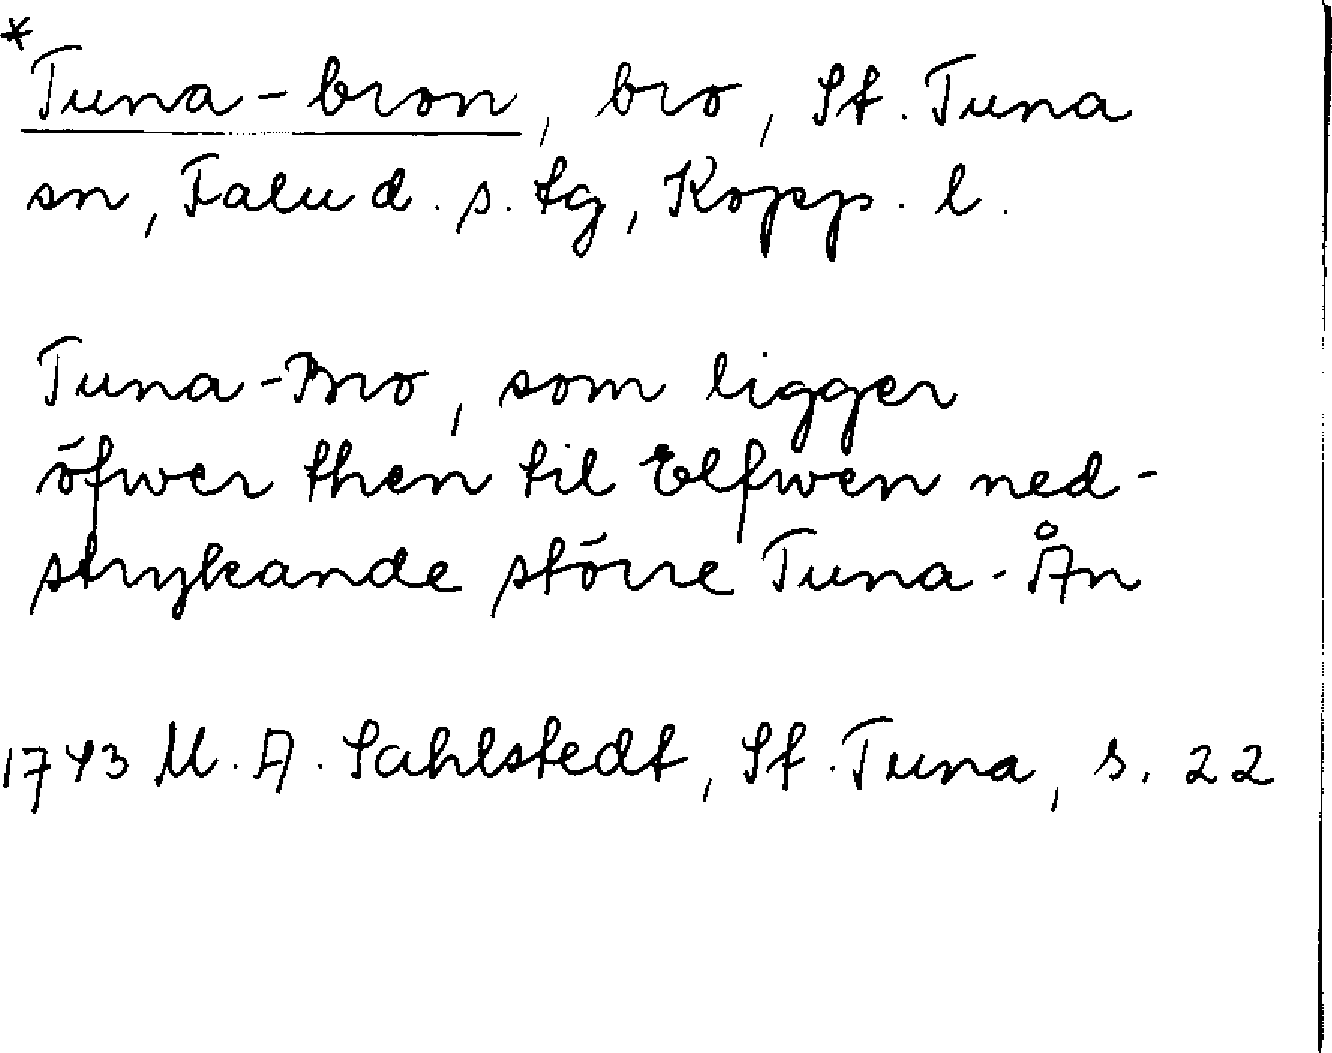 *
Tuna-bron, bro, St. Tuna
sn, Falu d. s. tg, Kopp. l.
Tuna-Bro, som ligger
öfwer then til Elfwen ned-
strykande större Tuna-Ån
1743 M. A. Sahlstedt, St. Tuna, s. 22